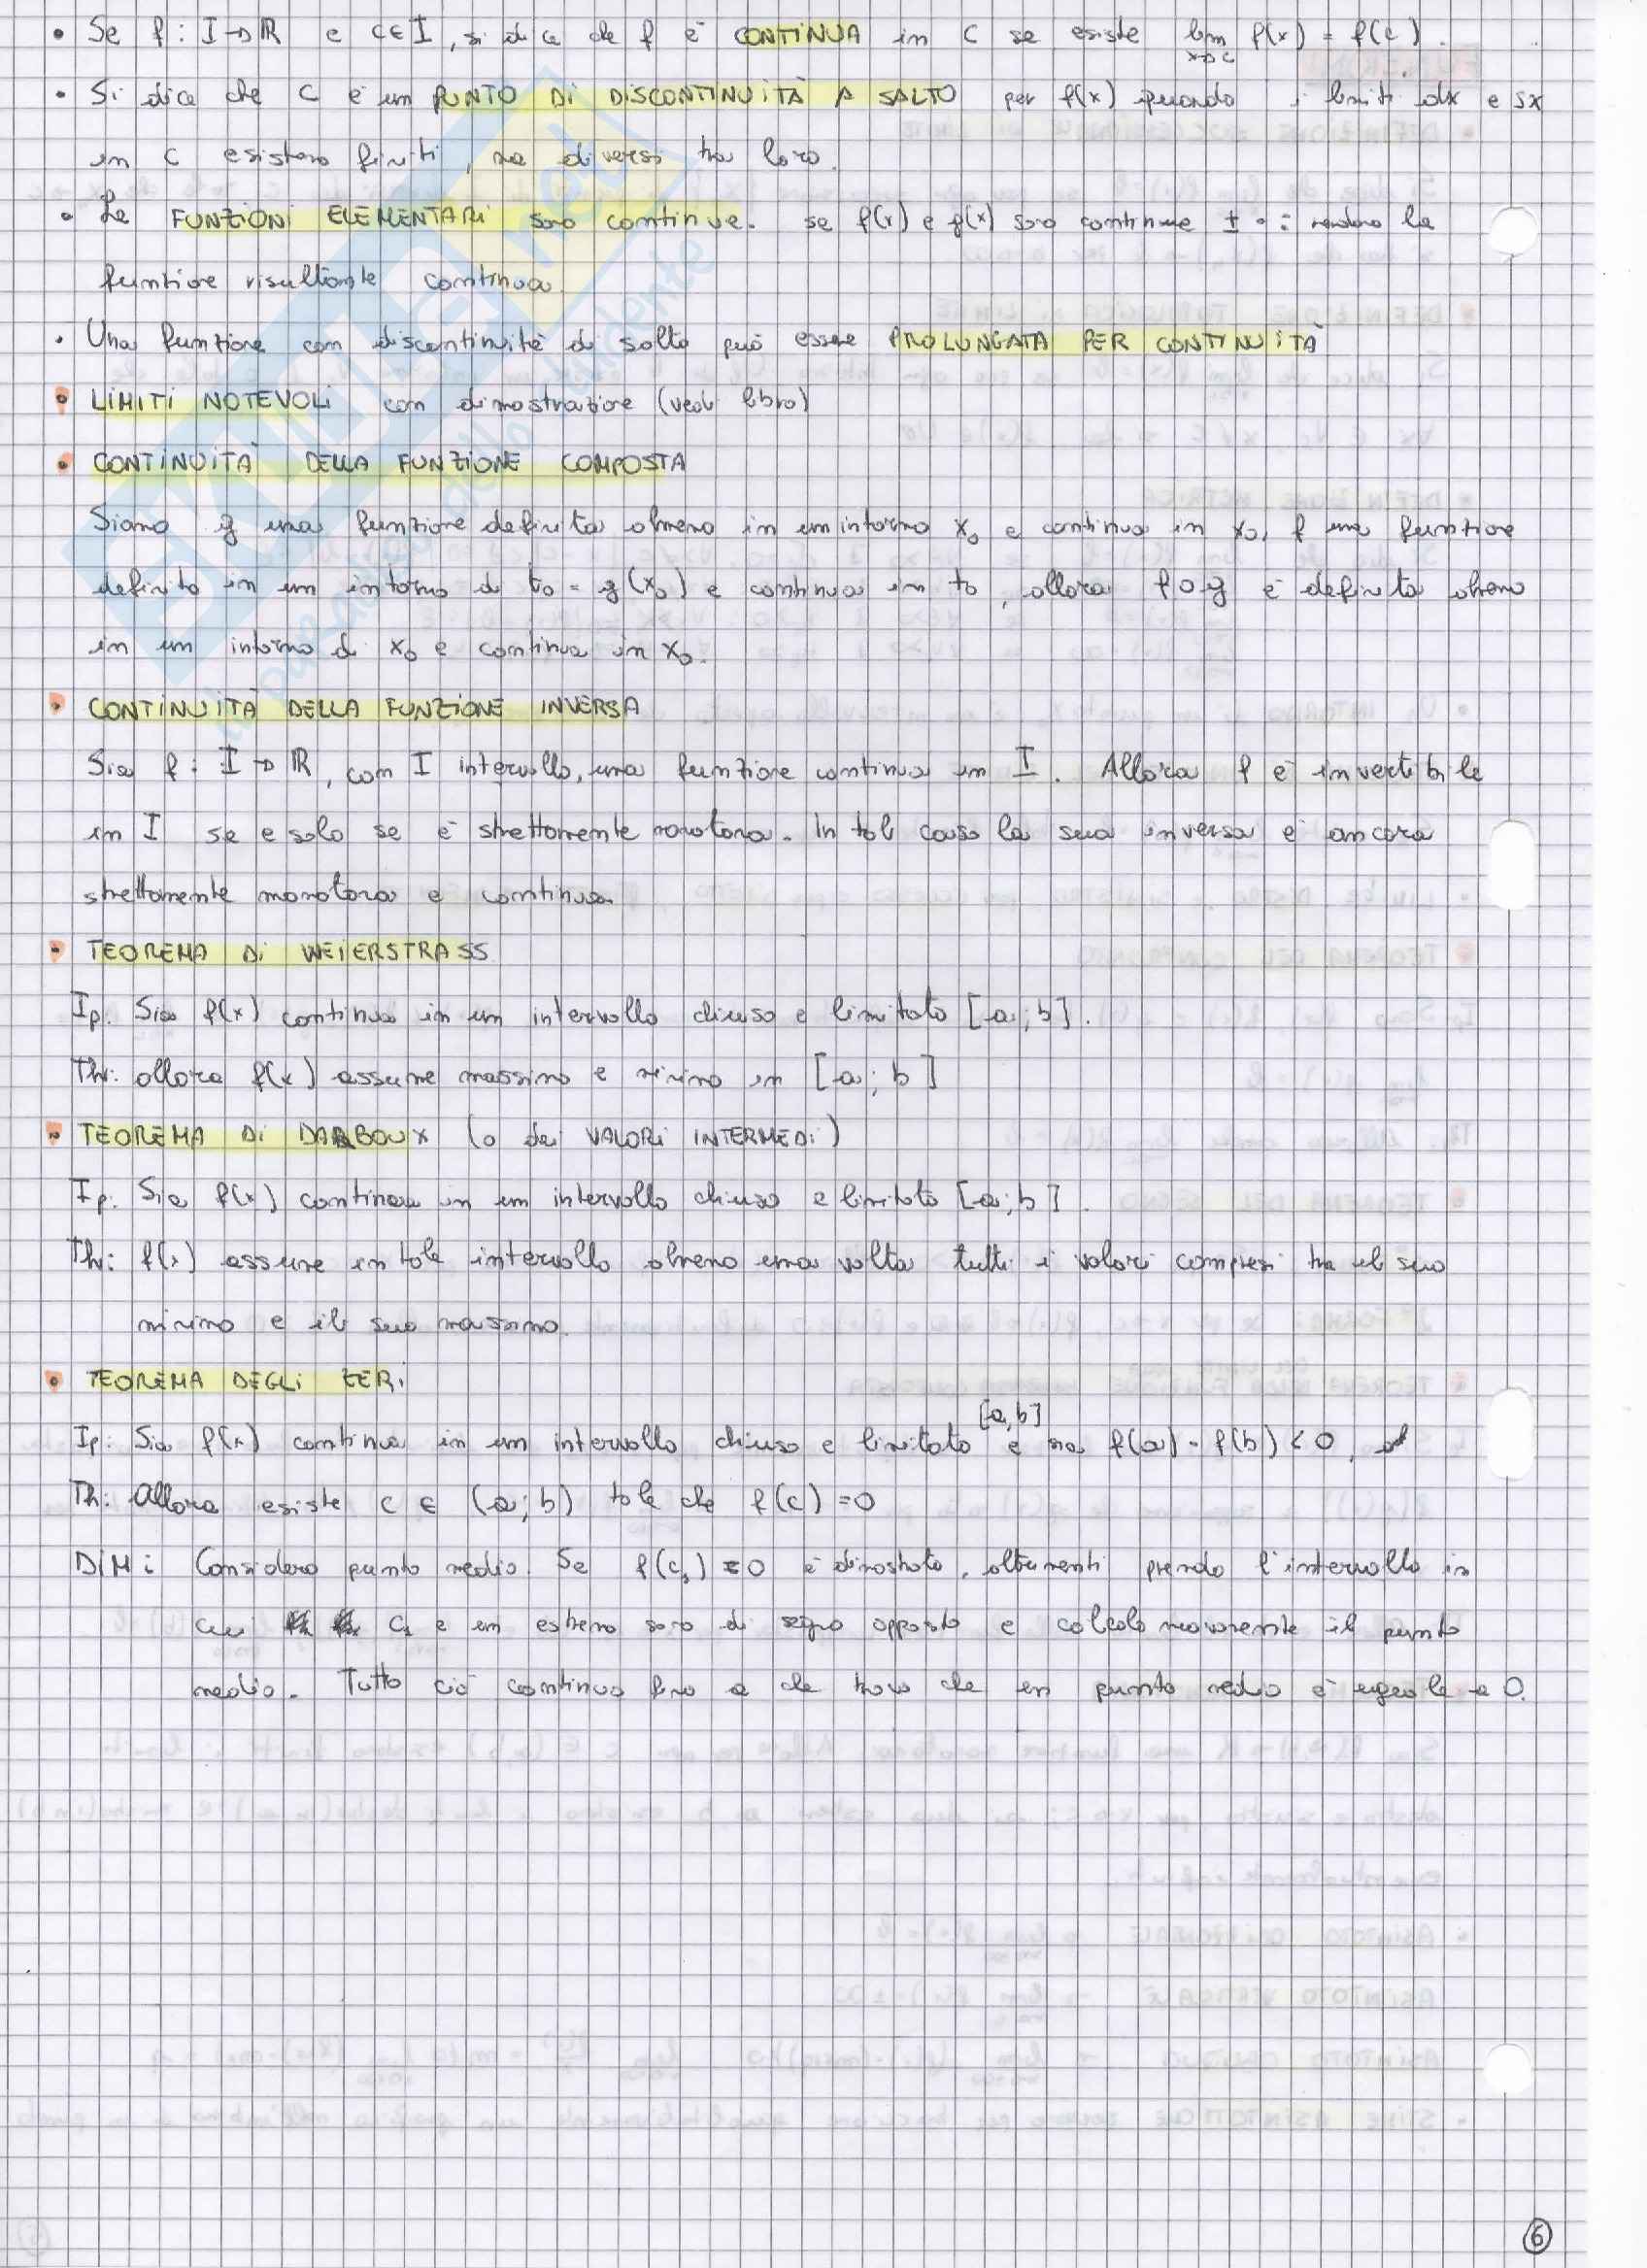 • Se f: I→ℝ e c∈I, si dice che f è CONTINUA in c se esiste lim x→c f(x) = f(c).
• Si dice che c è un PUNTO DI DISCONTINUITÀ A SALTO per f(x) quando i limiti dx e sx
in c esistono finiti, ma diversi tra loro.
• Le FUNZIONI ELEMENTARI sono continue. se f(x) e g(x) sono continue ± • : rendono la
funzione risultante continua.
• Una funzione con discontinuità di salto può essere PROLUNGATA PER CONTINUITÀ
• LIMITI NOTEVOLI con dimostrazione (vedi libro)
• CONTINUITÀ DELLA FUNZIONE COMPOSTA
Siano g una funzione definita almeno in un intorno x₀ e continua in x₀, f una funzione
definita in un intorno di t₀ = g(x₀) e continua in t₀, allora f∘g è definita almeno
in un intorno di x₀ e continua in x₀.
• CONTINUITÀ DELLA FUNZIONE INVERSA
Sia f: I→ℝ, con I intervallo, una funzione continua in I. Allora f è invertibile
in I se e solo se è strettamente monotona. In tal caso la sua inversa è ancora
strettamente monotona e continua.
• TEOREMA DI WEIERSTRASS
Ip. Sia f(x) continua in un intervallo chiuso e limitato [a; b].
Th: allora f(x) assume massimo e minimo in [a; b]
• TEOREMA DI DARBOUX (o dei VALORI INTERMEDI)
Ip. Sia f(x) continua in un intervallo chiuso e limitato [a; b].
Th: f(x) assume in tale intervallo almeno una volta tutti i valori compresi tra il suo
minimo e il suo massimo.
• TEOREMA DEGLI ZERI
Ip: Sia f(x) continua in un intervallo chiuso e limitato [a, b] e sia f(a) · f(b) < 0,
Th: Allora esiste c ∈ (a; b) tale che f(c) = 0
DIM: Considero punto medio. Se f(c₁) = 0 è dimostrato, altrimenti prendo l'intervallo in
cui c₁ e un estremo sono di segno opposto e calcolo nuovamente il punto
medio. Tutto ciò continua fino a che trovo che un punto medio è uguale a 0.
SKUOLA.net
il paradiso dello studente
6